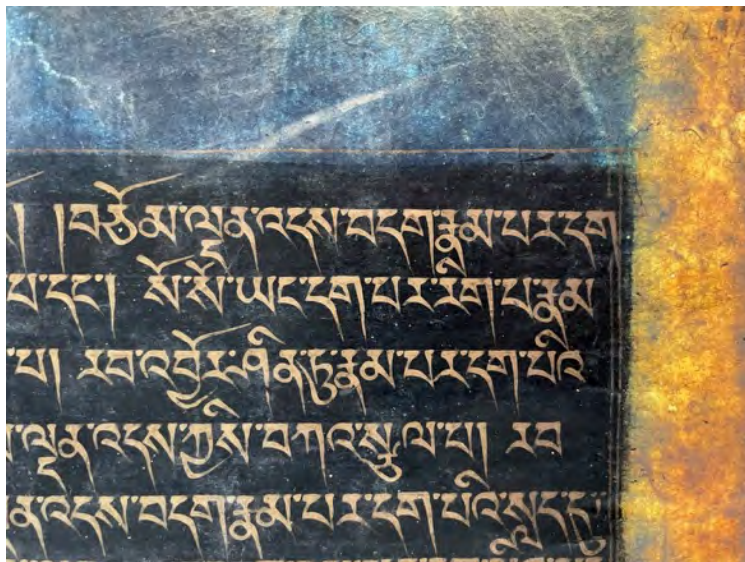 ། །བཅོམ་ལྡན་འདས་བདག་རྣམ་པར་དག
པ་དང་། སོ་སོ་ཡང་དག་པར་རིག་པ་རྣམ
པ། རབ་འབྱོར་ཤིན་ཏུ་རྣམ་པར་དག་པའི
ལྡན་འདས་ཀྱིས་བཀའ་སྩལ་པ། རབ
ན་འདས་བདག་རྣམ་པར་དག་པའི་སླད་དུ་